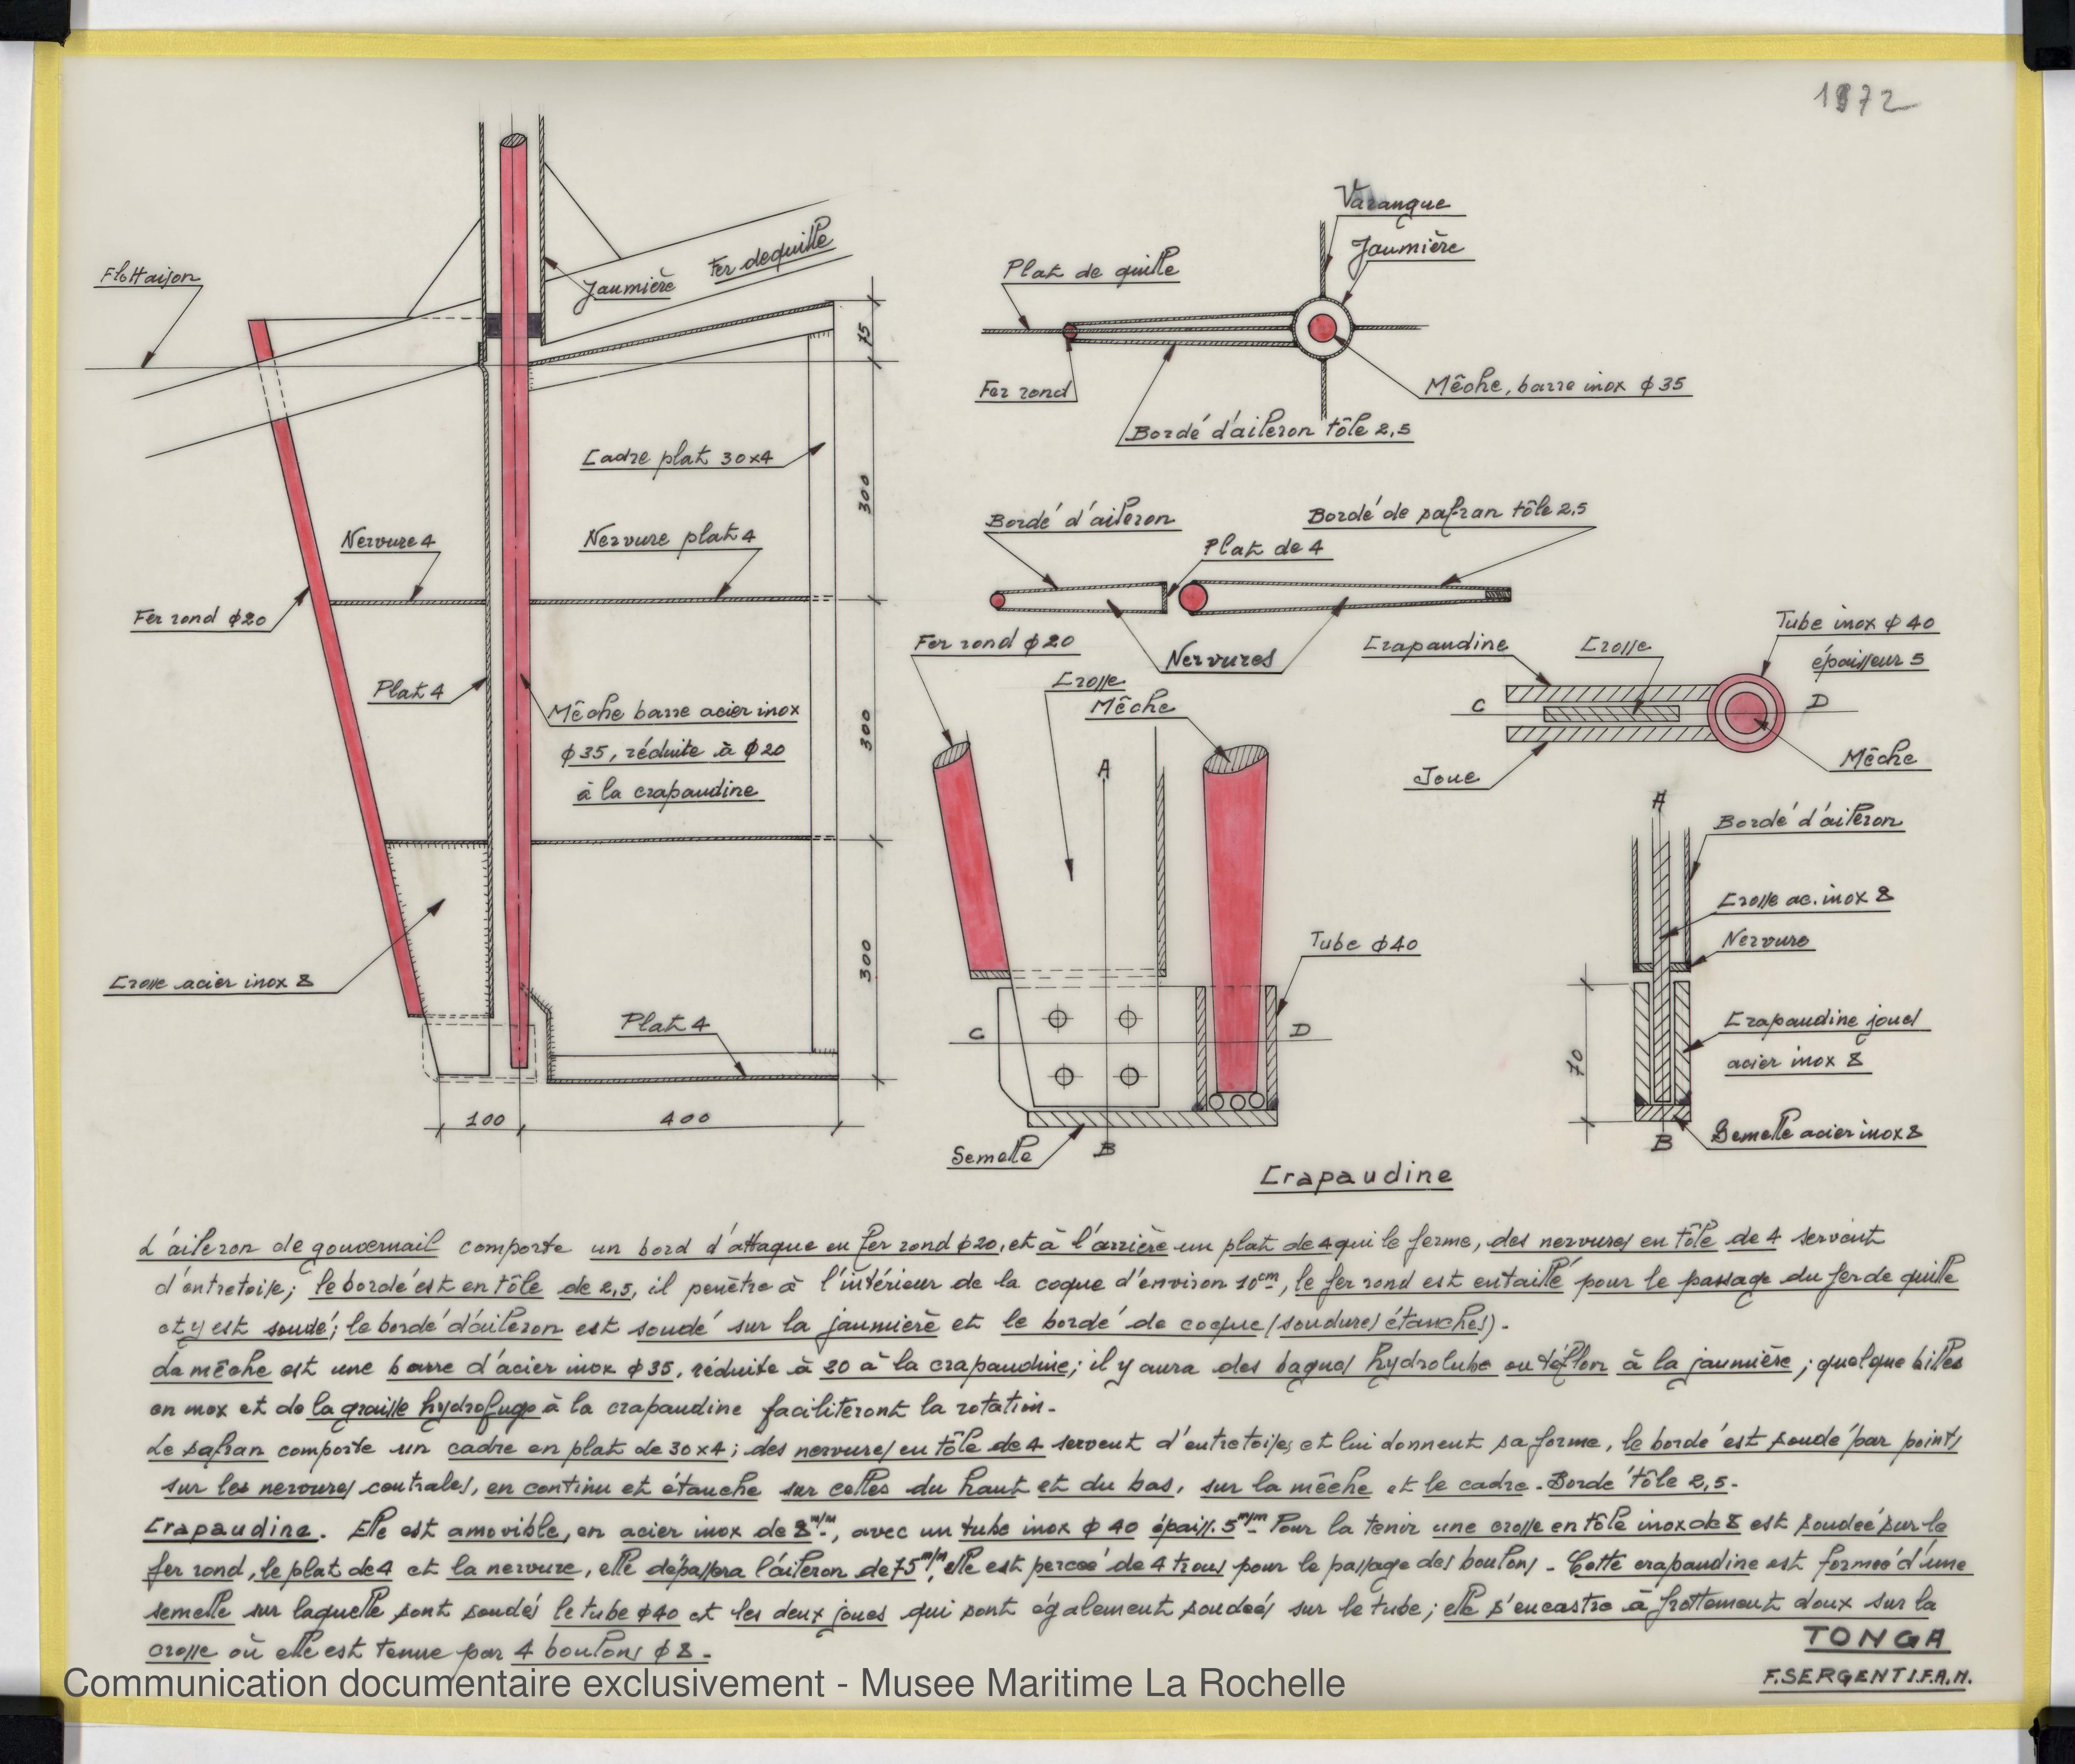 1972
Flottaison
Jaumière
Fer de quille
75
Cadre plat 30x4
300
Nervure 4
Nervure plat 4
Fer rond ϕ20
Plat 4
Mêche barre acier inox
ϕ35, réduite à ϕ20
à la crapaudine
300
Crosse acier inox 8
300
Plat 4
100
400
Varangue
Jaumière
Plat de quille
Fer rond
Mêche, barre inox ϕ 35
Bordé d'aileron tôle 2,5
Bordé d'aileron
Bordé de safran tôle 2,5
Plat de 4
Nervures
Fer rond ϕ20
Crosse
Mêche
A
Tube ϕ40
C
D
Semelle
B
Crapaudine
Crapaudine
Crosse
Tube inox ϕ 40
épaisseur 5
C
D
Joue
Mêche
A
Bordé d'aileron
Crosse ac. inox 8
Nervure
Crapaudine joues
acier inox 8
70
Semelle acier inox 8
B
L'aileron de gouvernail comporte un bord d'attaque en fer rond ϕ20, et à l'arrière un plat de 4 qui le ferme, des nervures en tôle de 4 servent
d'entretoise; le bordé est en tôle de 2,5, il penètre à l'intérieur de la coque d'environ 10cm, le fer rond est entaillé pour le passage du fer de quille
et y est soudé; le bordé d'aileron est soudé sur la jaumière et le bordé de coque (soudures étanches).
La mêche est une barre d'acier inox ϕ 35, réduite à 20 à la crapaudine; il y aura des bagues hydrolube ou téflon à la jaumière; quelque billes
en inox et de la graisse hydrofuge à la crapaudine faciliteront la rotation.
Le safran comporte un cadre en plat de 30x4; des nervures en tôle de 4 servent d'entretoises et lui donnent sa forme, le bordé est soudé par points
sur les nervures centrales, en continu et étanche sur celles du haut et du bas, sur la mêche et le cadre. Bordé tôle 2,5.
Crapaudine. Elle est amovible, en acier inox de 8 m/m, avec un tube inox ϕ 40 épaiss. 5 m/m Pour la tenir une crosse en tôle inox de 8 est soudée sur le
fer rond, le plat de 4 et la nervure, elle dépassera l'aileron de 75 m/m, elle est percée de 4 trous pour le passage des boulons. Cette crapaudine est formée d'une
semelle sur laquelle sont soudés le tube ϕ40 et les deux joues qui sont également soudées sur le tube; elle s'encastre à frottement doux sur la
crosse où elle est tenue par 4 boulons ϕ 8.
TONGA
F. SERGENT I.F.A.N.
Communication documentaire exclusivement - Musee Maritime La Rochelle